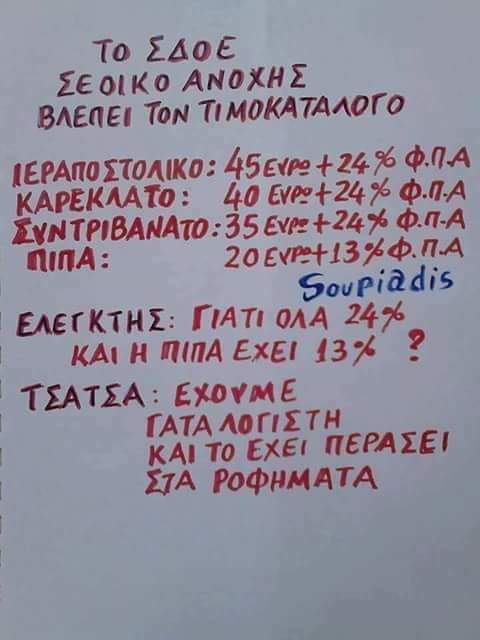 ΤΟ ΣΔΟΕ
ΣΕ ΟΙΚΟ ΑΝΟΧΗΣ
ΒΛΕΠΕΙ ΤΟΝ ΤΙΜΟΚΑΤΑΛΟΓΟ
ΙΕΡΑΠΟΣΤΟΛΙΚΟ: 45 ΕΥΡΩ + 24% Φ.Π.Α
ΚΑΡΕΚΛΑΤΟ: 40 ΕΥΡΩ + 24% Φ.Π.Α
ΣΥΝΤΡΙΒΑΝΑΤΟ: 35 ΕΥΡΩ + 24% Φ.Π.Α
ΠΙΠΑ: 20 ΕΥΡΩ + 13% Φ.Π.Α
Soupiadis
ΕΛΕΓΚΤΗΣ: ΓΙΑΤΙ ΟΛΑ 24%
ΚΑΙ Η ΠΙΠΑ ΕΧΕΙ 13% ?
ΤΣΑΤΣΑ: ΕΧΟΥΜΕ
ΓΑΤΑ ΛΟΓΙΣΤΗ
ΚΑΙ ΤΟ ΕΧΕΙ ΠΕΡΑΣΕΙ
ΣΤΑ ΡΟΦΗΜΑΤΑ